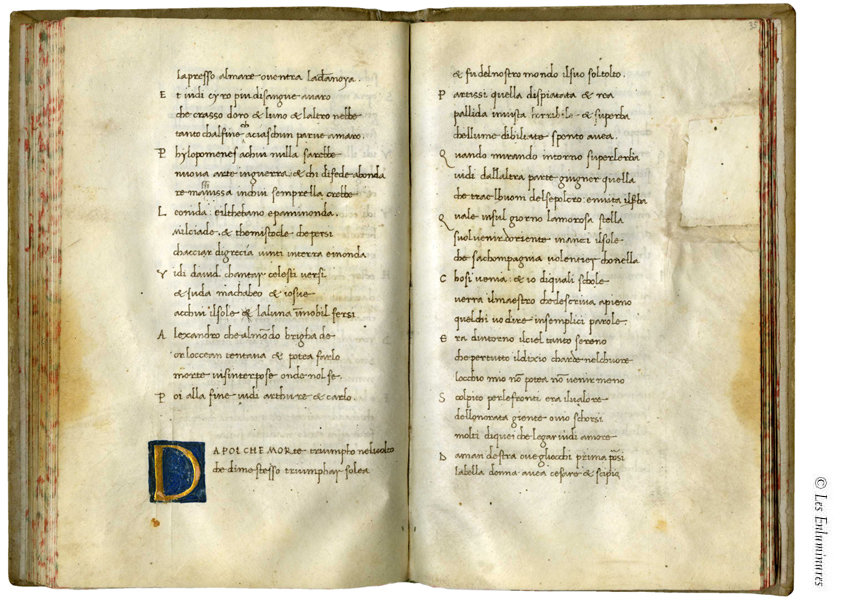 lapresso almare oventra ladanoya.
E t vidi cyro piu disangue avaro
che crasso doro & luno & laltro nebbe
tanto chalfine aciaschun parve amaro.
P hylopomenes achui nulla sarebbe
nuova arte inguerra & chi difede abonda
re massinissa inchui semprella crebbe
L eonida: eilthebano epaminonda.
milciade & themistocle chepersi
chacciar digrecia vinti interra emonda
V idi david chantar celesti versi
& Juda machabeo & iosue
acchui ilsole & laluna immobil fersi
A lexandro che almondo brigha de
or loccean tentava & potea farlo
morte visinterpose onde nol fe.
P oi alla fine vidi arthure & carlo.
D APOI CHE MORte triumpho nelvolto
che dime stesso triumphar solea
35
& fu delnostro mondo ilsuo sol tolto.
P artissi quella dispiatata & rea
pallida invista horribile & superba
chellume dibiltate spento avea.
Q uando mirando intorno superlerba
vidi dallaltra parte giugner quella
che trae lhuom delsepolcro: envita ilserba
Q uale insul giorno lamorosa stella
suolvenir doriente inanci ilsole
che sachompagnia volentier chonella
C hosi venia: & io diquali schole
verra ilmaestro chedescriva apieno
quelchi vo dire insemplici parole.
E ra dintorno ilciel tanto sereno
che pertutto ildixio chardea nelchuore
locchio mio non potea non venir meno
S colpito perlefronti era ilvalore
dellonorata giente ovio schorsi
molti diquei che legar vidi amore
D aman destra ove gliocchi prima porsi
labella donna avea cesare & scipio
© Les Enluminures